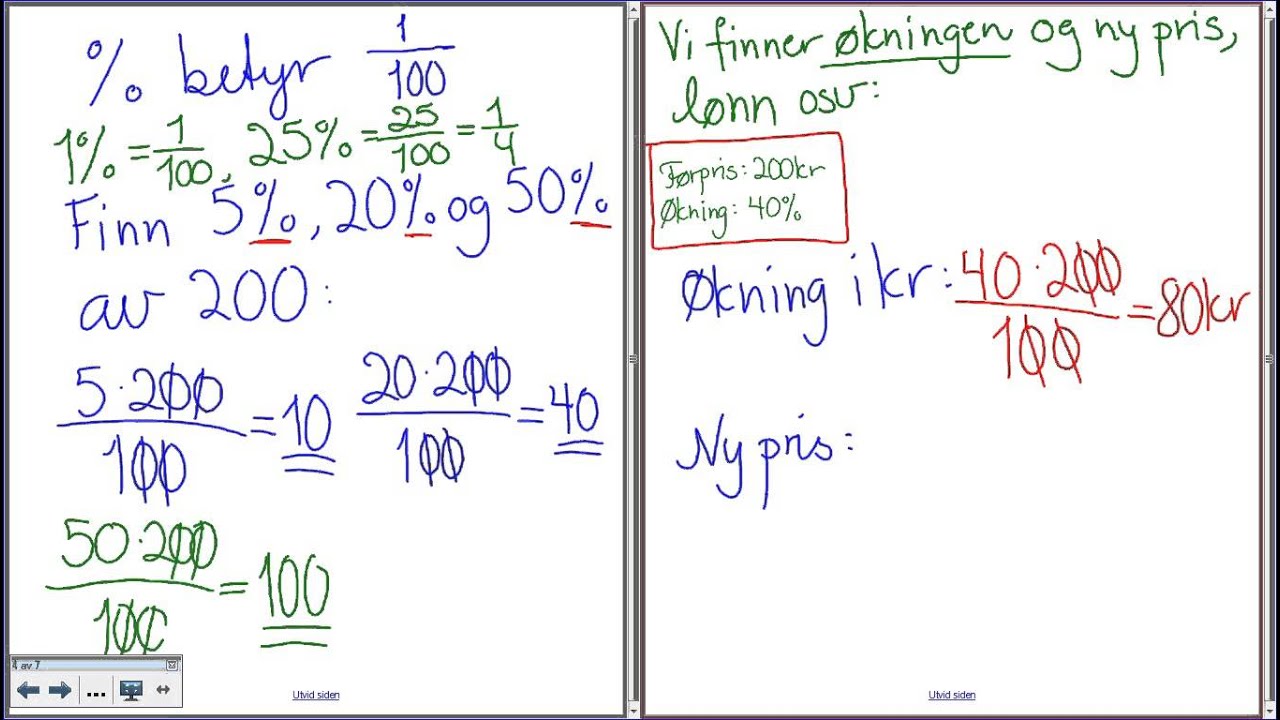 % betyr 1/100
1% = 1/100, 25% = 25/100 = 1/4
Finn 5%, 20% og 50%
av 200:
5·200/100 = 10 20·200/100 = 40
50·200/100 = 100
4 av 7
...
Utvid siden
Vi finner økningen og ny pris,
lønn osv:
Førpris: 200kr
Økning: 40%
Økning i kr: 40·200/100 = 80kr
Ny pris:
Utvid siden